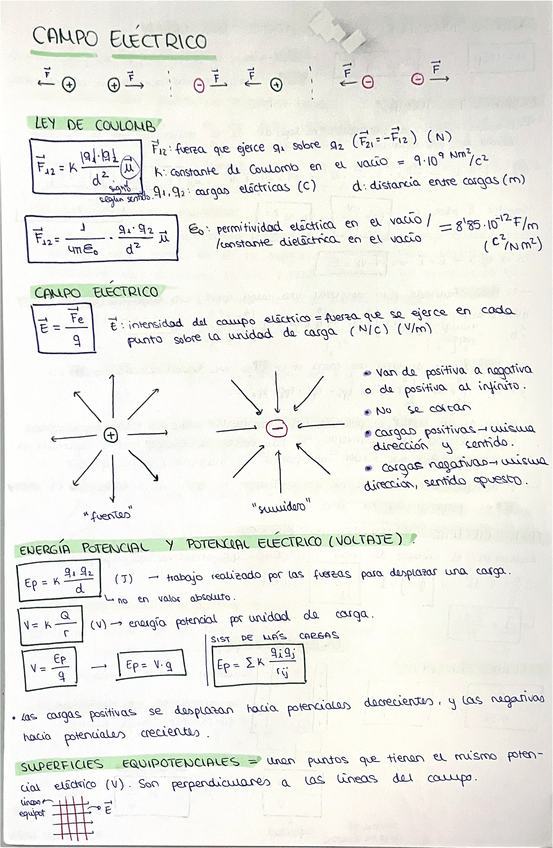 CAMPO ELÉCTRICO
F⃗ + + F⃗ - F⃗ F⃗ + F⃗ - - F⃗
LEY DE COULOMB
F⃗₁₂ = K |q₁|·|q₂| / d² μ⃗
signo según sentido.
F⃗₁₂: fuerza que ejerce q₁ sobre q₂ (F⃗₂₁ = -F⃗₁₂) (N)
K: constante de Coulomb en el vacío = 9·10⁹ Nm²/C²
q₁, q₂: cargas eléctricas (C) d: distancia entre cargas (m)
F⃗₁₂ = 1 / 4πε₀ · q₁·q₂ / d² μ⃗
ε₀: permitividad eléctrica en el vacío / = 8'85·10⁻¹² F/m
/constante dieléctrica en el vacío (C²/Nm²)
CAMPO ELÉCTRICO
E⃗ = F⃗e / q
E⃗: intensidad del campo eléctrico = fuerza que se ejerce en cada
punto sobre la unidad de carga (N/C) (V/m)
+
"fuentes"
-
"sumidero"
• van de positiva a negativa
o de positiva al infinito.
• No se cortan
• cargas positivas → misma
dirección y sentido.
• cargas negativas → misma
dirección, sentido opuesto.
ENERGÍA POTENCIAL Y POTENCIAL ELÉCTRICO (VOLTAJE)
Ep = K q₁ q₂ / d (J) → trabajo realizado por las fuerzas para desplazar una carga.
↳ no en valor absoluto.
V = K Q / r (V) → energía potencial por unidad de carga.
SIST DE MÁS CARGAS
V = Ep / q → Ep = V·q Ep = Σ K qᵢqⱼ / rᵢⱼ
• Las cargas positivas se desplazan hacia potenciales decrecientes, y las negativas
hacia potenciales crecientes.
SUPERFICIES EQUIPOTENCIALES = unen puntos que tienen el mismo poten-
cial eléctrico (V). Son perpendiculares a las líneas del campo.
líneas
equipot
E⃗